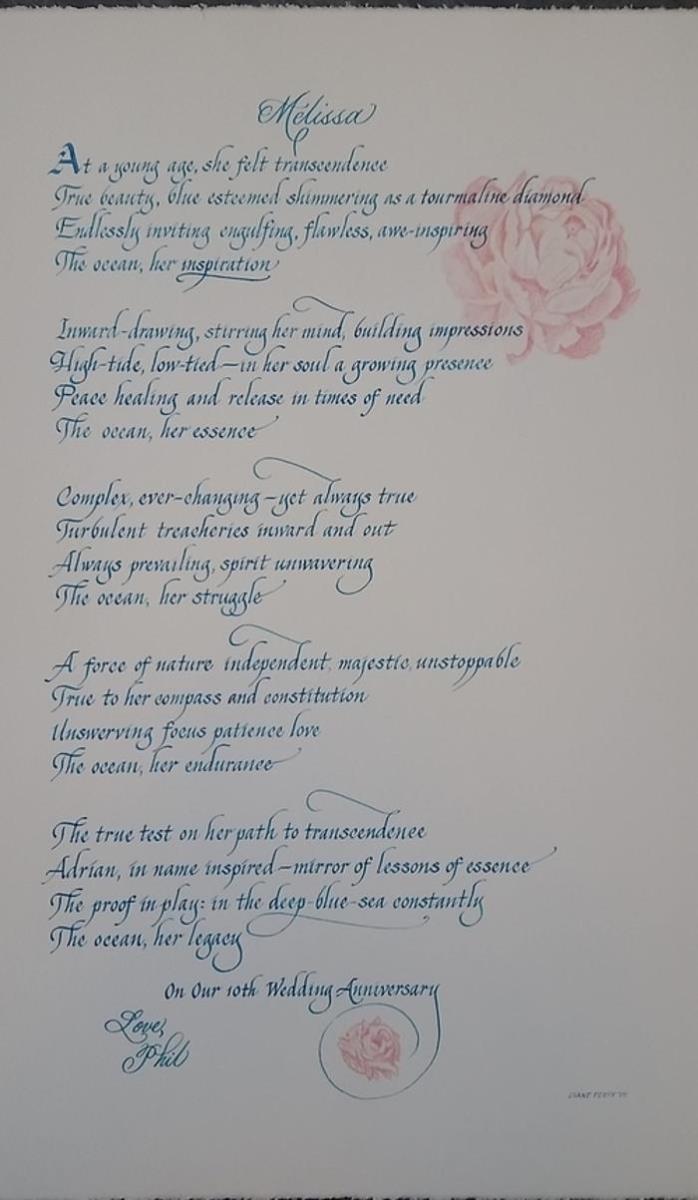 Melissa
At a young age, she felt transcendence
True beauty, blue esteemed shimmering as a tourmaline diamond
Endlessly inviting engulfing, flawless, awe-inspiring
The ocean, her inspiration
Inward-drawing, stirring her mind, building impressions
High-tide, low-tied—in her soul a growing presence
Peace healing and release in times of need
The ocean, her essence
Complex, ever-changing—yet always true
Turbulent treacheries inward and out
Always prevailing, spirit unwavering
The ocean, her struggle
A force of nature independent, majestic, unstoppable
True to her compass and constitution
Unswerving focus patience love
The ocean, her endurance
The true test on her path to transcendence
Adrian, in name inspired—mirror of lessons of essence
The proof in play: in the deep-blue-sea constantly
The ocean, her legacy
On Our 10th Wedding Anniversary
Love,
Phil
DIANE